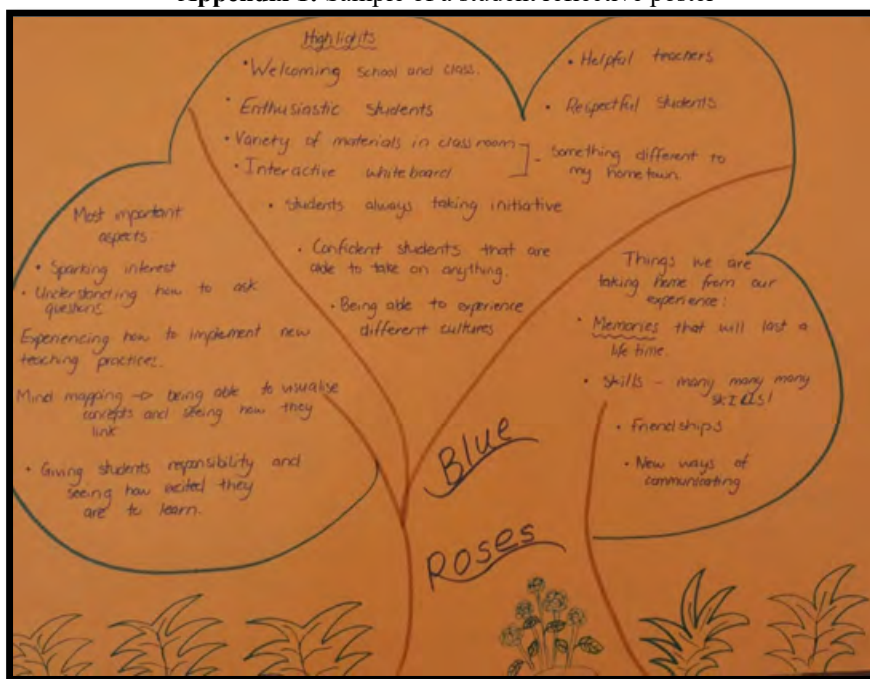 Appendix 1: Sample of a student reflective poster
Highlights
• Welcoming school and class.
• Enthusiastic students
• Variety of materials in classroom
• Interactive whiteboard
- something different to
my hometown.
• Students always taking initiative
• Confident students that are
able to take on anything.
• Being able to experience
different cultures
• Helpful teachers
• Respectful students
Most important
aspects
• Sparking interest
• Understanding how to ask
questions
Experiencing how to implement new
teaching practices.
Mind mapping -> being able to visualise
concepts and seeing how they
link
• Giving students responsibility and
seeing how excited they
are to learn.
Things we are
taking home from our
experience:
• Memories that will last a
life time.
• Skills - many many many
SKILLS!
• Friendships
• New ways of
communicating
Blue
Roses